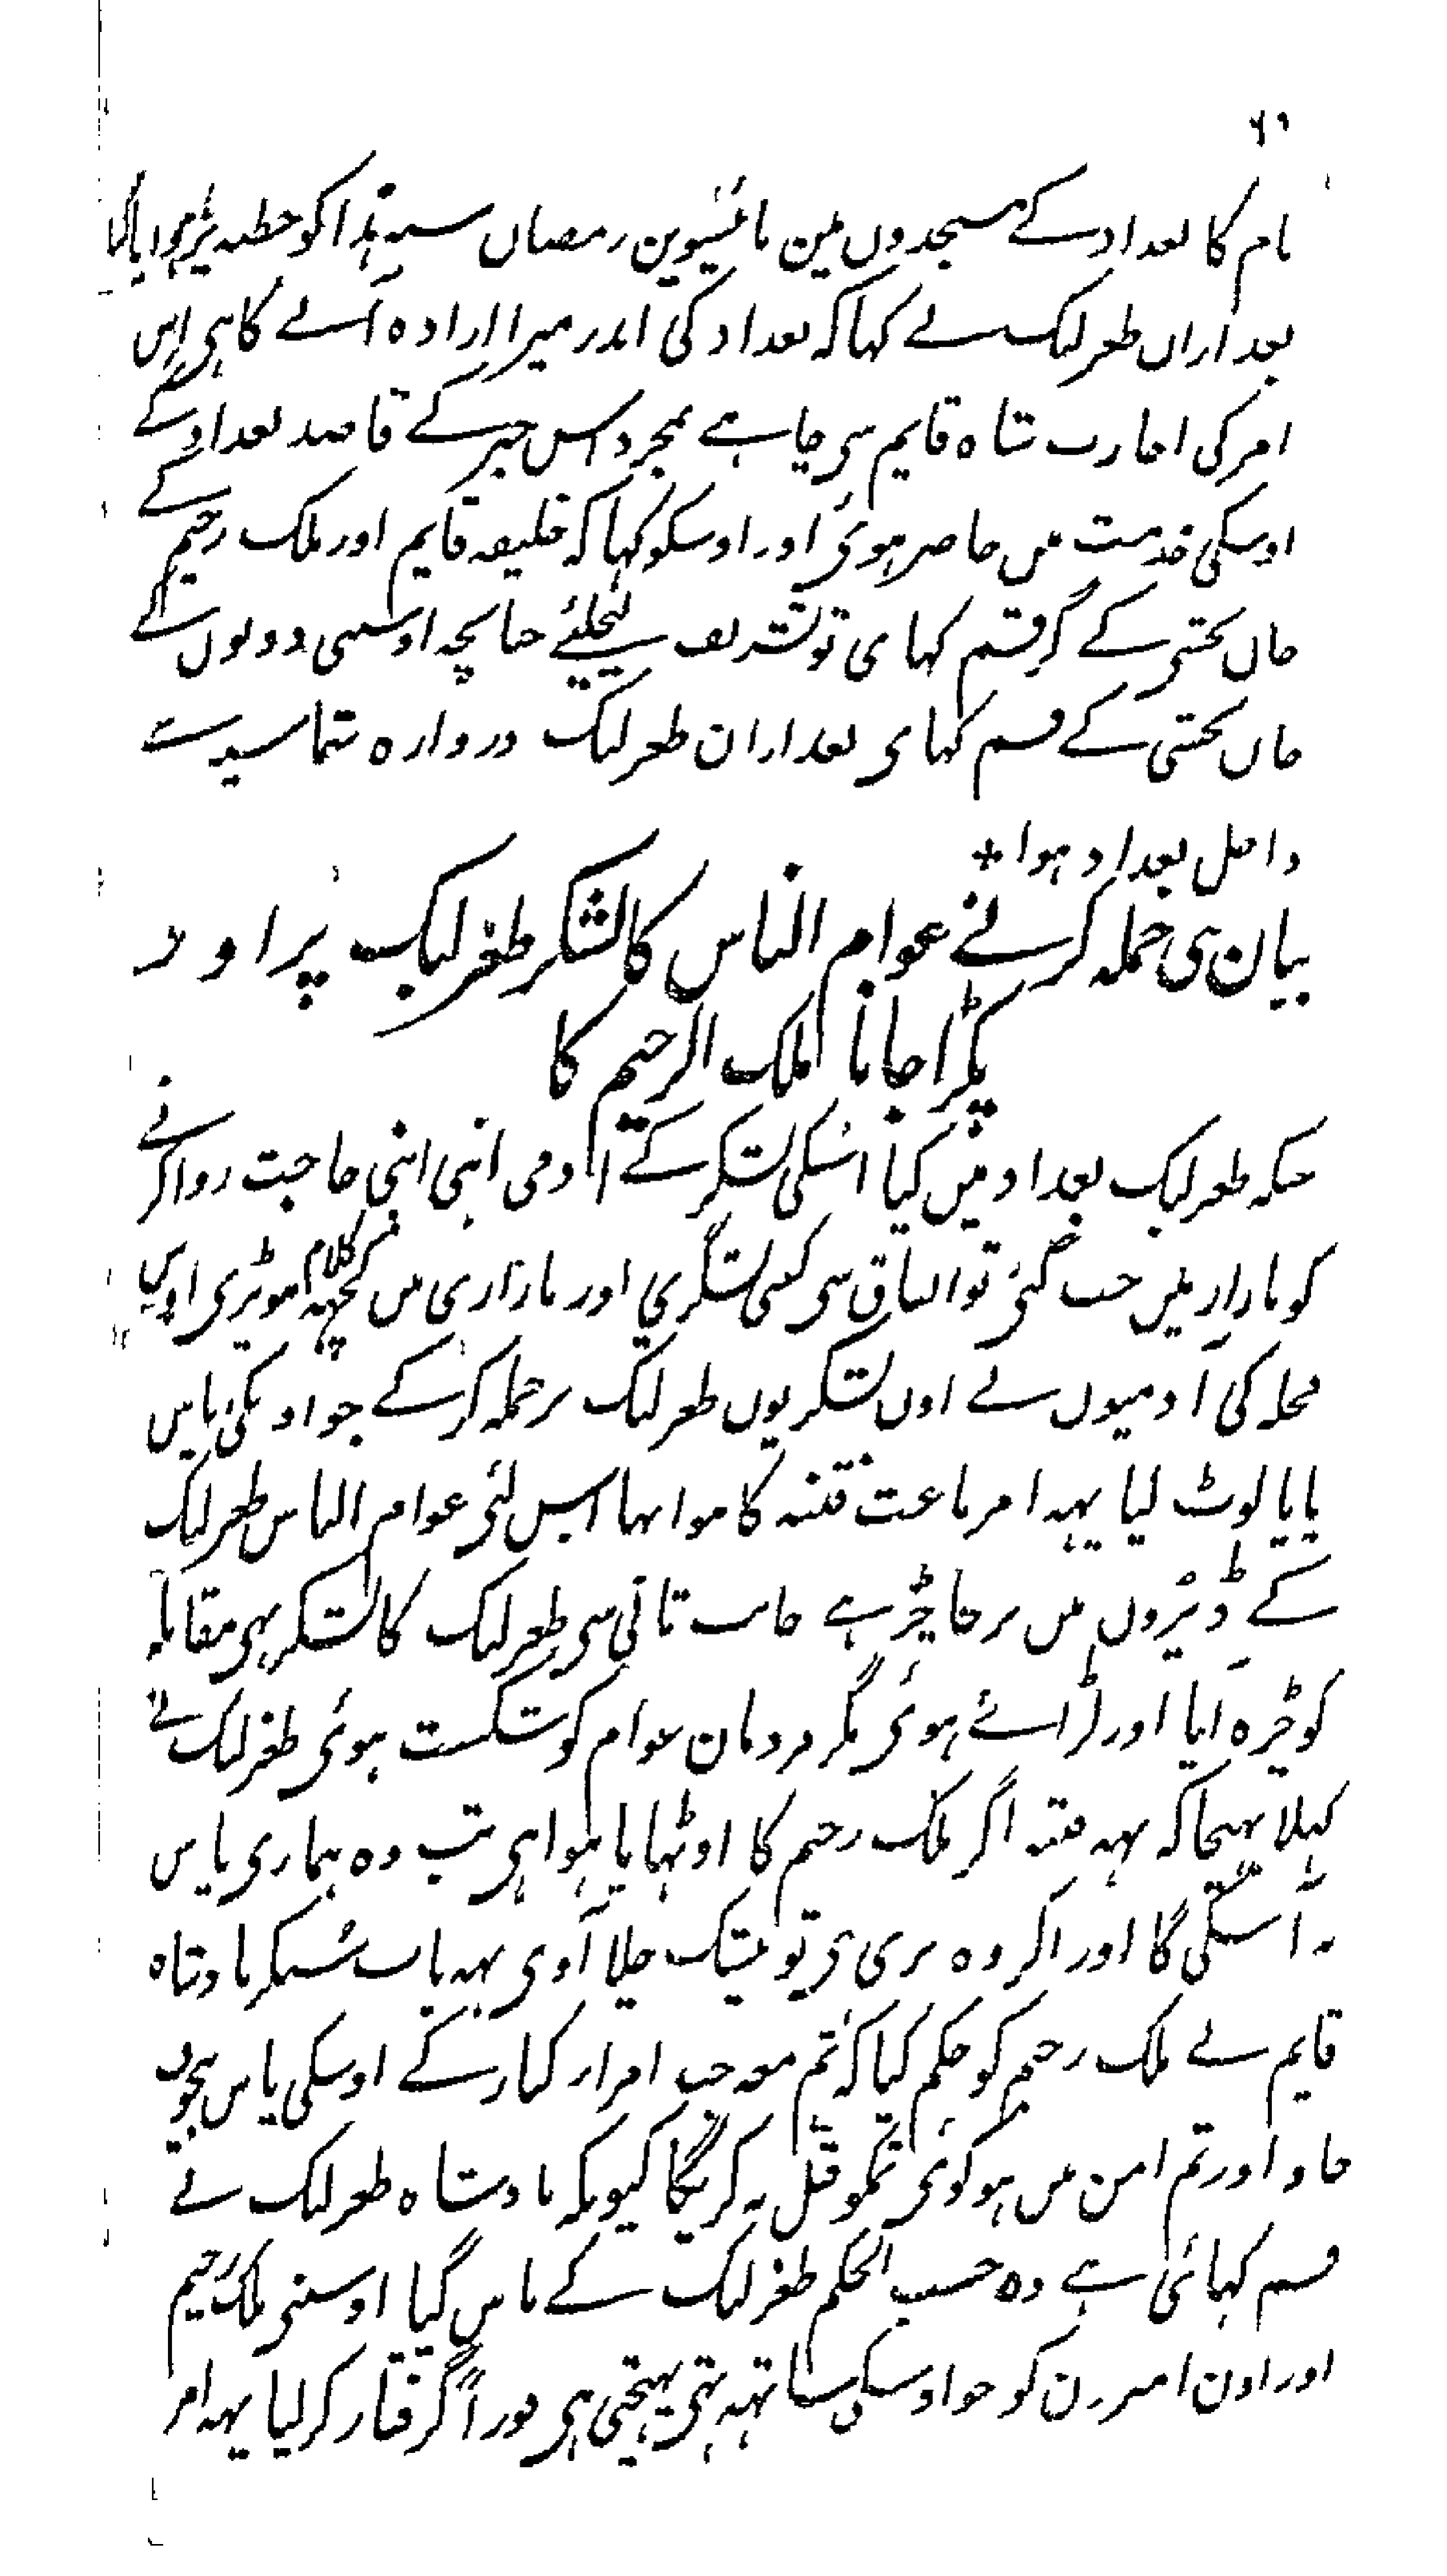 نام کا بغداد کے مسجدوں مین بائیسوین رمضان سنہ ہذا کو خطبہ پڑہوایا گیا
بعد ازاں طغرلبک نے کہا کہ بغداد کی اندر میرا ارادہ آنے کا ہی اس
امر کی اجازت شاہ قایم سی چاہے بمجرد اس خبر کے قاصد بغداد کے
اوسکی خدمت میں حاضر ہوئی اور اوسکو کہا کہ خلیفہ قایم اور ملک رحیم کے
جاں بخشی کے گر قسم کہای تو تشریف لیچلیئے چنانچہ اوسنی دونوں کے
جاں بخشی کے قسم کہای بعد ازان طغرلبک دروازہ شماسیہ سے
داخل بغداد ہوا +
بیان ہی حملہ کرنے عوام الناس کا لشکر طغرلبک پر اور
پکڑا جانا الملک الرحیم کا
جبکہ طغرلبک بغداد میں گیا اسکی لشکر کے آدمی اپنی اپنی حاجت روا کرنے
کو بازار میں جب گئی تو اتفاق سی کسی لشکری اور بازاری میں کچہہ کلام ہو پڑی اوس
محلہ کی آدمیوں نے اون لشکریوں طغرلبک پر حملہ کر کے جو اونکی پاس
پایا لوٹ لیا یہہ امر باعث فتنہ کا ہوا تہا اس لئی عوام الناس طغرلبک
کے ڈیروں میں پر جا چڑہے جانب ثانی سی طغرلبک کا لشکر بہی مقابلہ
کو چڑہ آیا اور لڑائے ہوئی مگر مردمان عوام کو شکست ہوئی طغرلبک نے
کہلا بہیجا کہ یہہ فتنہ اگر ملک رحیم کا اوٹہایا ہوا ہی تب وہ ہماری پاس
نہ آسکی گا اور اگر وہ بری ہی تو بیشک چلا آوی یہہ بات سنکر بادشاہ
قایم نے ملک رحیم کو حکم کیا کہ تم معہ امرار کبار کے اوسکی پاس
جاو اور تم امن میں ہو کوئی تمکو قتل نہ کریگا کیونکہ بادشاہ طغرلبک نے
قسم کہائی ہے وہ حسب الحکم طغرلبک کے پاس گیا اوسنی ملک رحیم
اور اون امیرن کو جو اوسکی ساتہہ تہی پہنچتی ہی فوراً گرفتار کر لیا یہہ امر